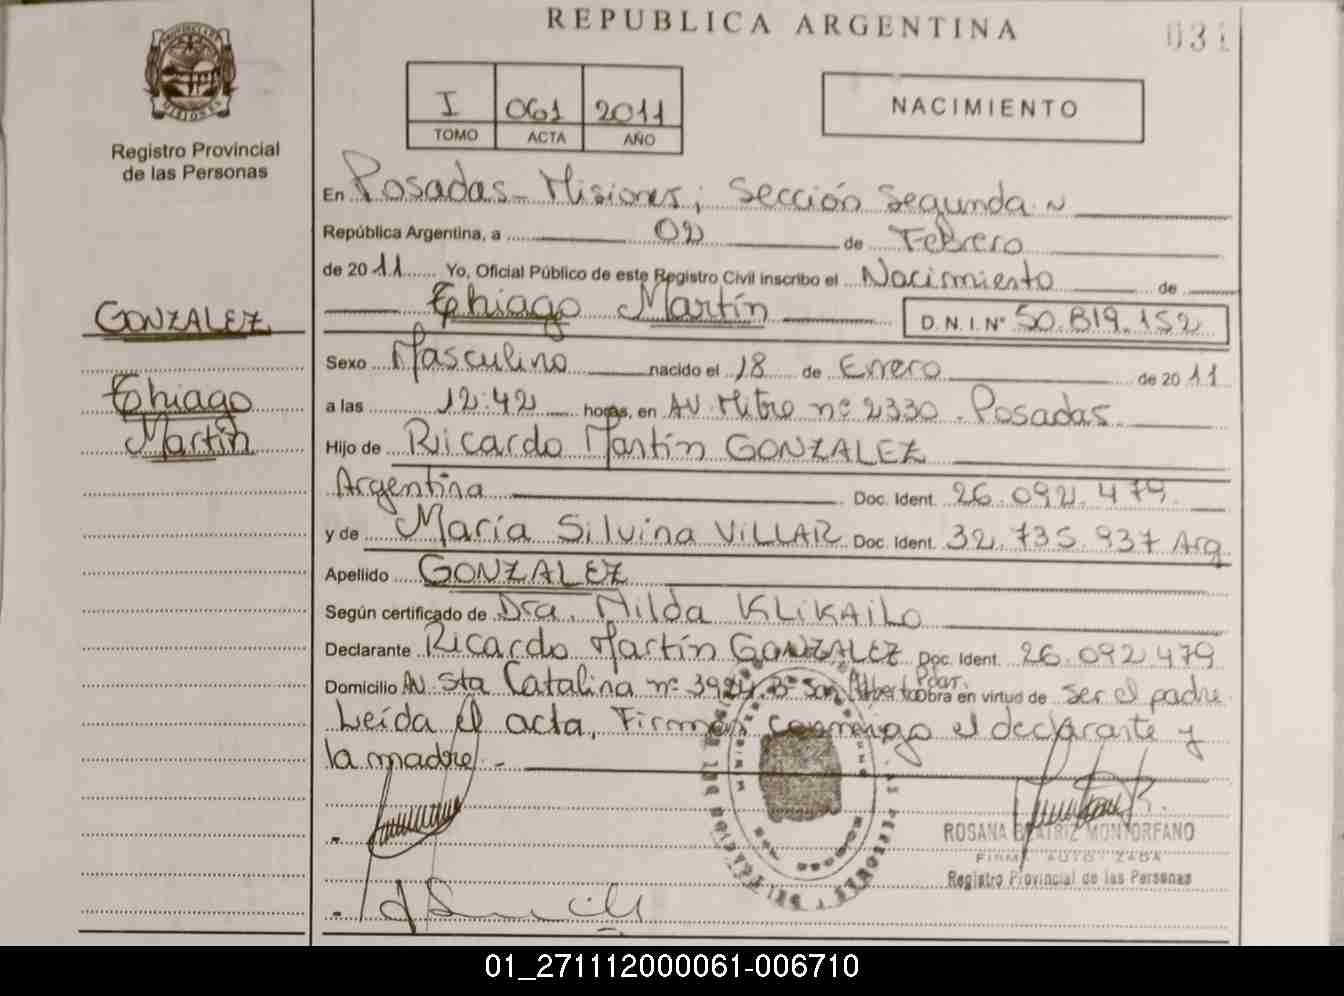 REPUBLICA ARGENTINA
031
PROVINCIA DE MISIONES
Registro Provincial
de las Personas
I 061 2011
TOMO ACTA AÑO
NACIMIENTO
En Posadas - Misiones; Sección Segunda ~
República Argentina, a 02 de Febrero
de 2011 Yo, Oficial Público de este Registro Civil inscribo el Nacimiento de
Thiago Martín D.N.I.N° 50.819.152
GONZALEZ
Thiago
Martín
Sexo Masculino nacido el 18 de Enero de 2011
a las 12:42 horas, en AV. Mitre nº 2330 - Posadas
Hijo de Ricardo Martín GONZALEZ
Argentina Doc. Ident. 26.092.479
y de María Silvina VILLAR Doc. Ident. 32.735.937 Arg.
Apellido GONZALEZ
Según certificado de Dra. Nilda KLIKAILO
Declarante Ricardo Martín GONZALEZ Doc. Ident. 26.092.479
Domicilio AV Sta Catalina nº 3924. Bº San Alberto Pdas. Obra en virtud de ser el padre
Leída el acta, Firman conmigo el declarante y
la madre. -
ROSANA BEATRIZ MONTORFANO
FIRMA AUTORIZADA
Registro Provincial de las Personas
01_271112000061-006710